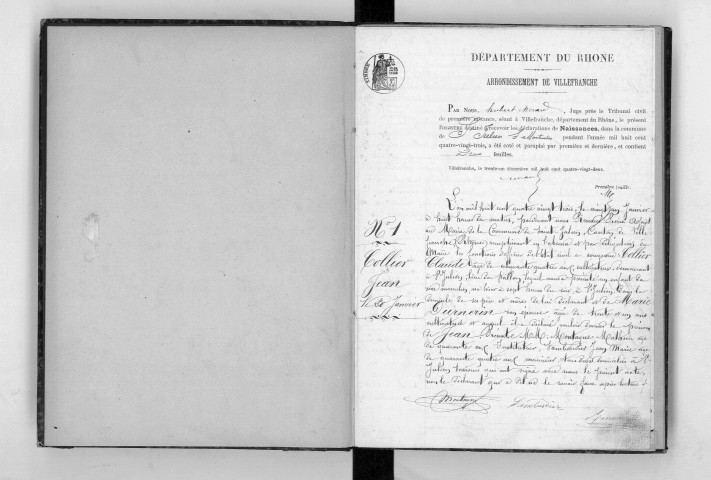 DÉPARTEMENT DU RHONE
ARRONDISSEMENT DE VILLEFRANCHE
PAR NOUS, Juge près le Tribunal civil
de première instance, séant à Villefranche, département du Rhône, le présent
REGISTRE destiné à recevoir les déclarations de Naissances, dans la commune
de St Julien pendant l'année mil huit cent
quatre-vingt-trois, a été coté et paraphé par première et dernière, et contient
feuilles.
Villefranche, le trente-un décembre mil huit cent quatre-vingt-deux.
Première feuille.
No 1
Collier
Jean
Le 20 Janvier
L'an mil huit cent quatre vingt trois, le vingt Janvier
à huit heures du matin, pardevant nous Pierre
au Maire de la Commune de Saint Julien, Canton de Ville
franche (Rhône) remplissant et par délégation du
Maire les fonctions d'officier de l'état civil a comparu Collier
Claude âgé de quarante quatre ans cultivateur demeurant
à St Julien, lequel nous a présenté un enfant du
sexe masculin né hier à sept heures du soir à St Julien dans le
domicile de ses père et mère de lui déclarant et de Marie
Durnerin son épouse âgée de trente et un ans
et auquel il a déclaré vouloir donner le prénom
de Jean Présents MM. Montagne Mathieu âgé
de quarante ans Instituteur, Jean Marie âgé
de quarante quatre ans tous deux domiciliés à St
Julien témoins qui ont signé avec nous le présent acte,
non le déclarant qui a dit ne le savoir faire après lecture